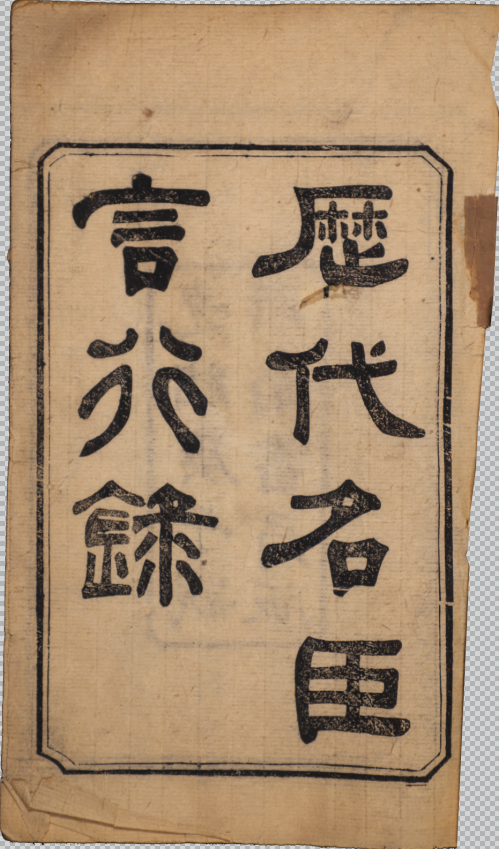 歷代名臣
言行錄